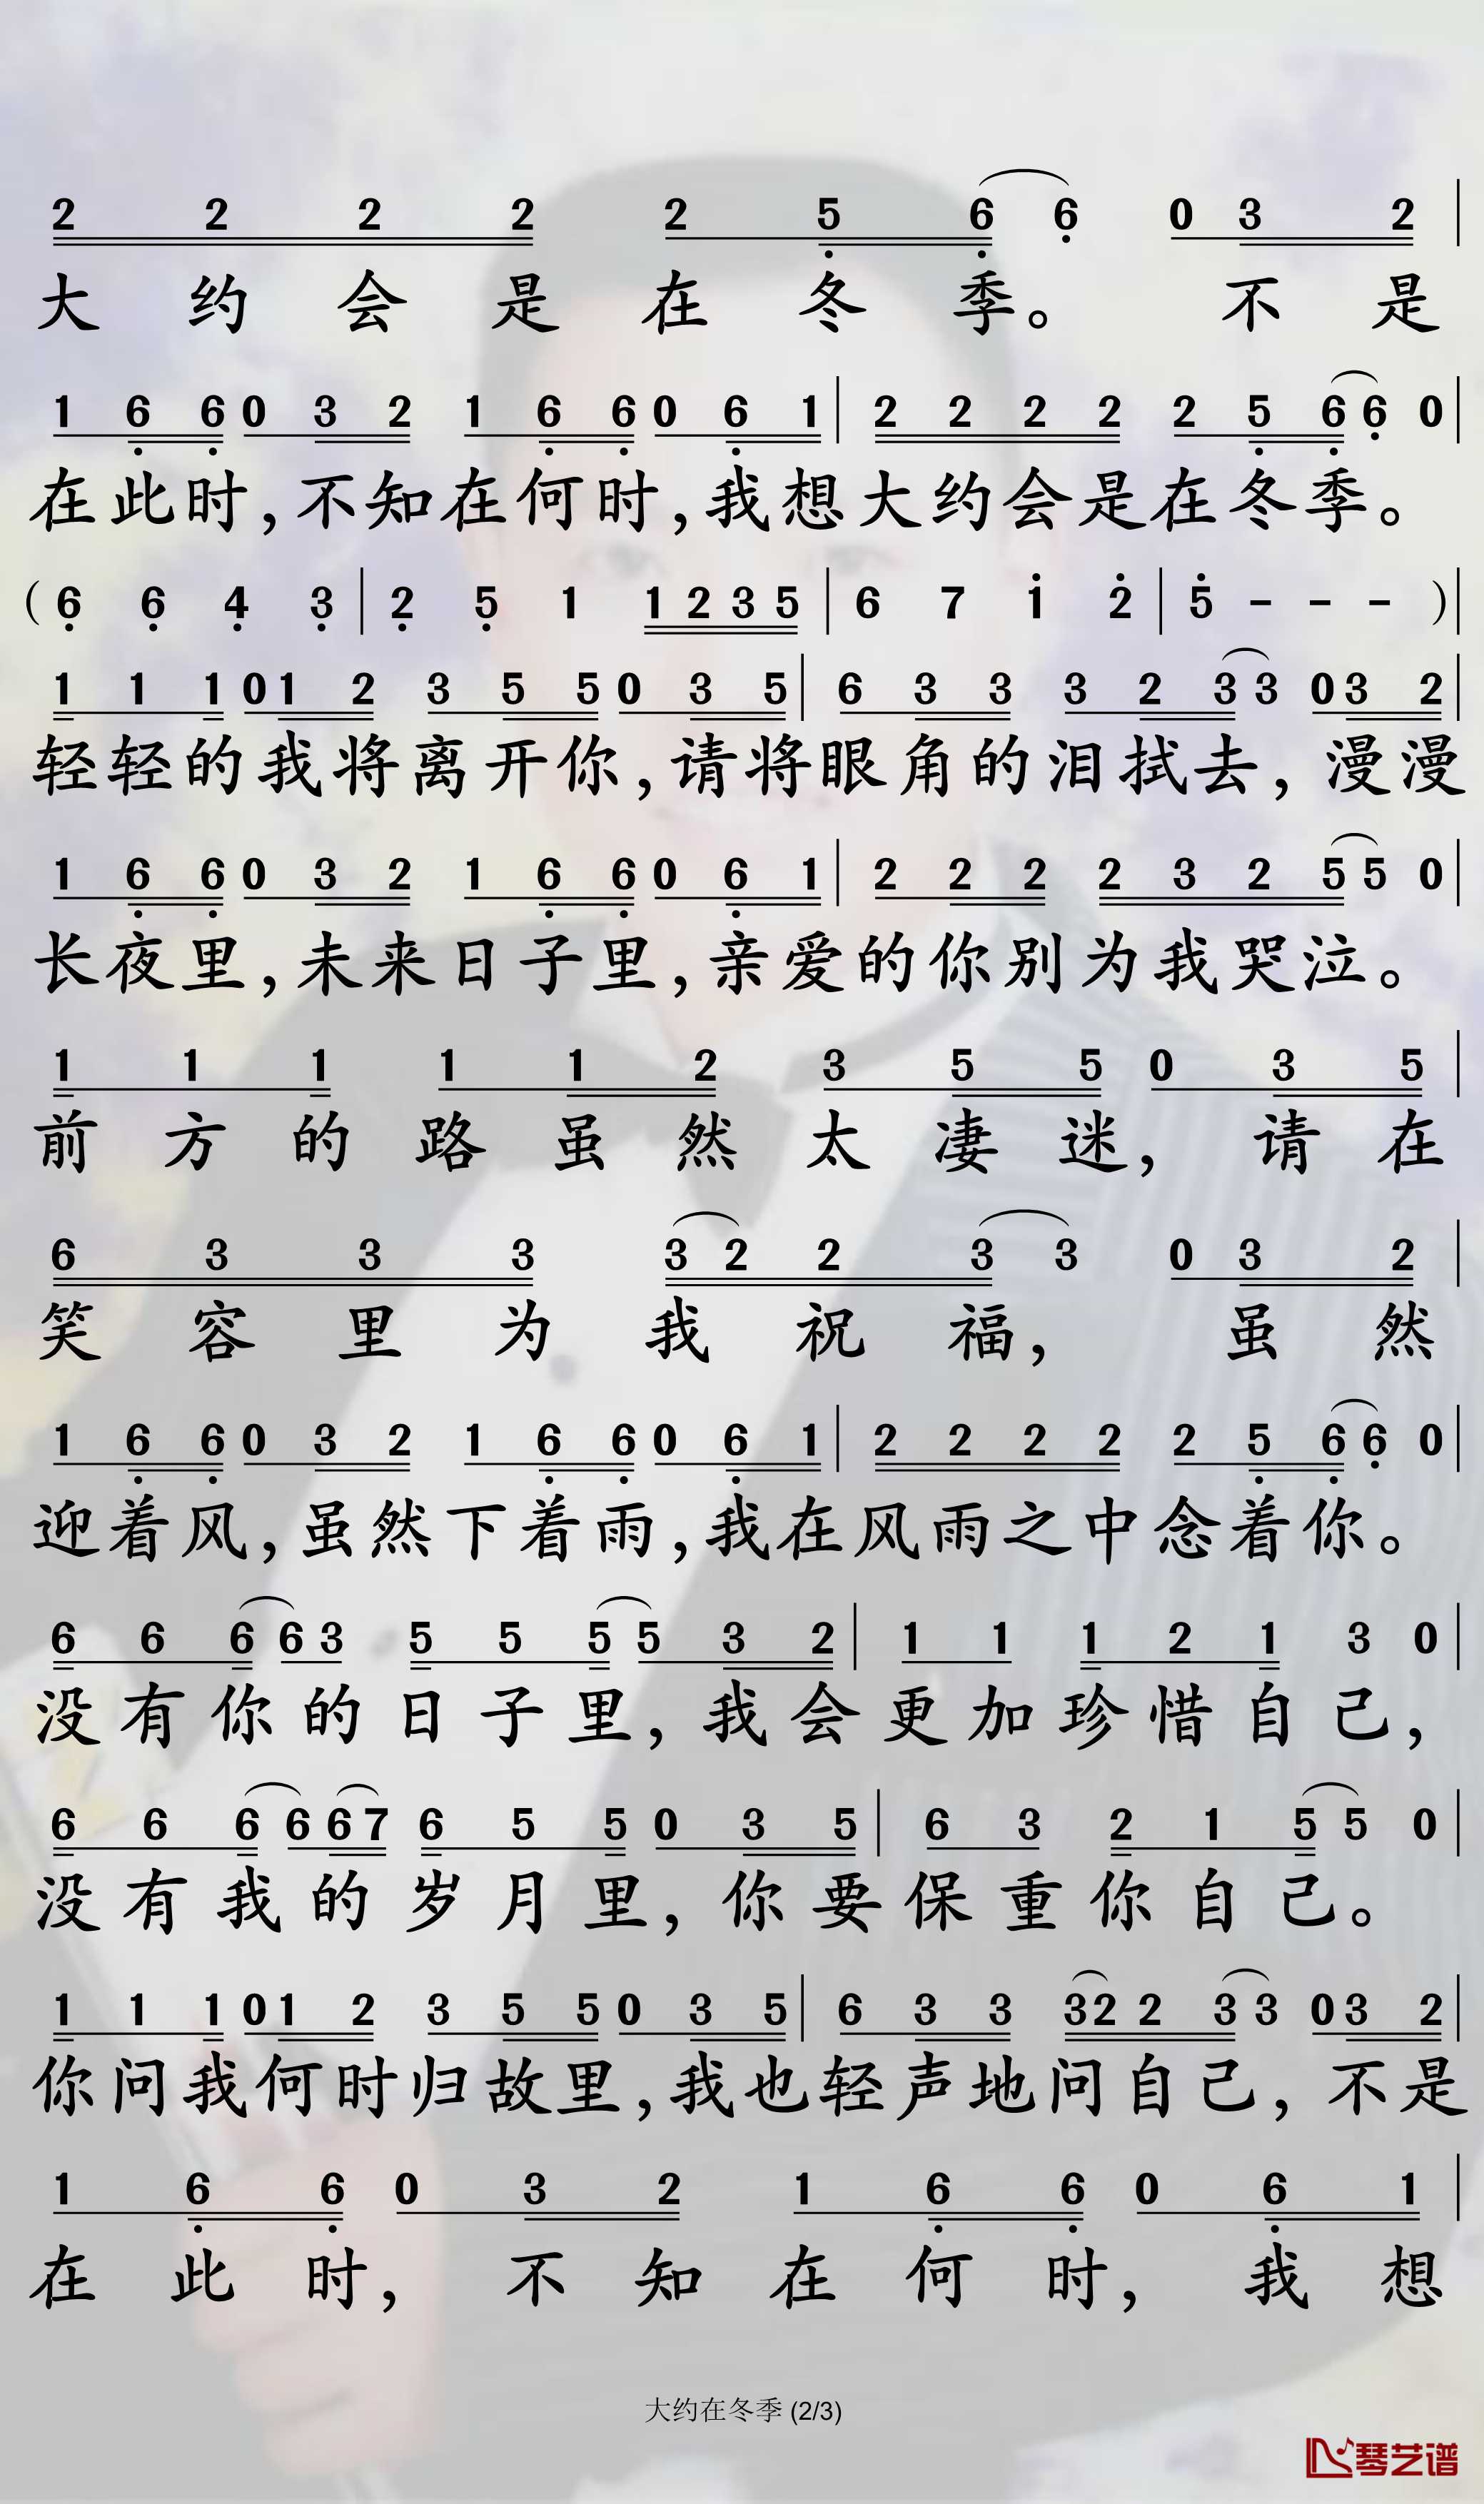 2 2 2 2 2 5 6 6 0 3 2
大约会是在冬季。不是
1 6 6 0 3 2 1 6 6 0 6 1 | 2 2 2 2 2 5 6 6 0
在此时,不知在何时,我想大约会是在冬季。
(6 6 4 3 | 2 5 1 1 2 3 5 | 6 7 1 2 | 5 - - - )
1 1 1 0 1 2 3 5 5 0 3 5 | 6 3 3 3 2 3 3 0 3 2
轻轻的我将离开你,请将眼角的泪拭去,漫漫
1 6 6 0 3 2 1 6 6 0 6 1 | 2 2 2 2 3 2 5 5 0
长夜里,未来日子里,亲爱的你别为我哭泣。
1 1 1 1 1 2 3 5 5 0 3 5
前方的路虽然太凄迷,请在
6 3 3 3 3 2 2 3 3 0 3 2
笑容里为我祝福,虽然
1 6 6 0 3 2 1 6 6 0 6 1 | 2 2 2 2 2 5 6 6 0
迎着风,虽然下着雨,我在风雨之中念着你。
6 6 6 6 3 5 5 5 5 3 2 | 1 1 1 2 1 3 0
没有你的日子里,我会更加珍惜自己,
6 6 6 6 6 7 6 5 5 0 3 5 | 6 3 2 1 5 5 0
没有我的岁月里,你要保重你自己。
1 1 1 0 1 2 3 5 5 0 3 5 | 6 3 3 3 2 2 3 3 0 3 2
你问我何时归故里,我也轻声地问自己,不是
1 6 6 0 3 2 1 6 6 0 6 1
在此时,不知在何时,我想
大约在冬季 (2/3)
琴艺谱